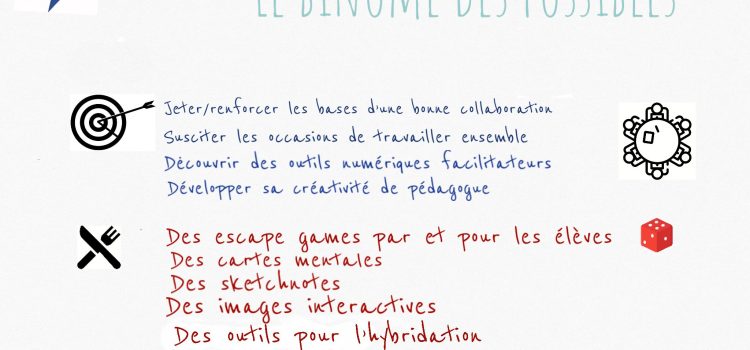 LE BINÔME DES POSSIBLES
Jeter/renforcer les bases d'une bonne collaboration
Susciter les occasions de travailler ensemble
Découvrir des outils numériques facilitateurs
Développer sa créativité de pédagogue
Des escape games par et pour les élèves
Des cartes mentales
Des sketchnotes
Des images interactives
Des outils pour l'hybridation